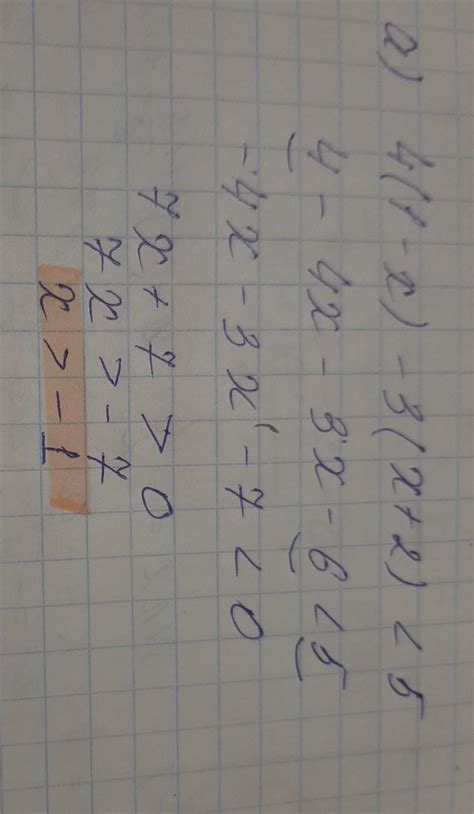 а) 4(1-x) -3(x+2) < 5
4 - 4x - 3x - 6 < 5
-4x - 3x - 7 < 0
7x + 7 > 0
7x > -7
x > -1